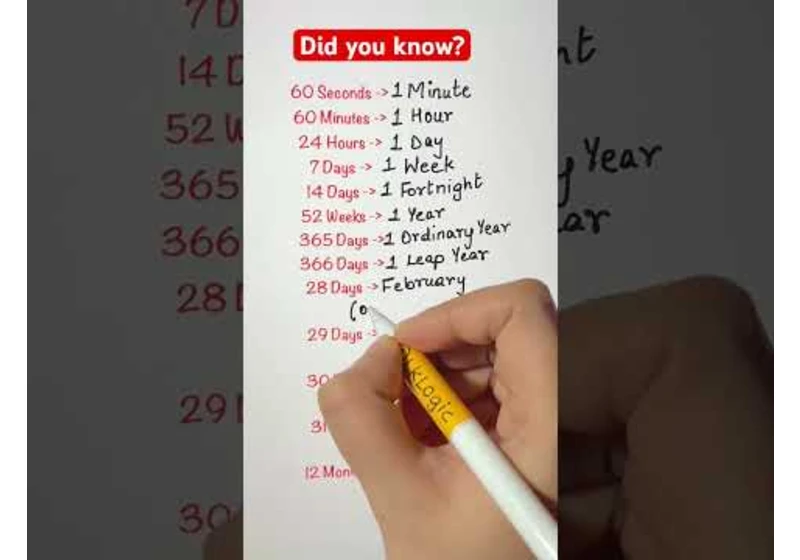 Did you know?
60 Seconds -> 1 Minute
60 Minutes -> 1 Hour
24 Hours -> 1 Day
7 Days -> 1 Week
14 Days -> 1 Fortnight
52 Weeks -> 1 Year
365 Days -> 1 Ordinary Year
366 Days -> 1 Leap Year
28 Days -> February
(o
29 Days ->
30
31
12 Mon
Logic